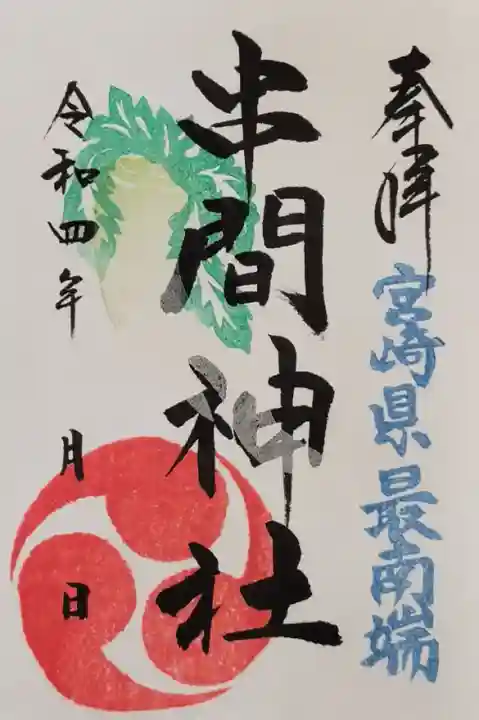 奉拝
宮崎県最南端
串間神社
令和四年 月 日